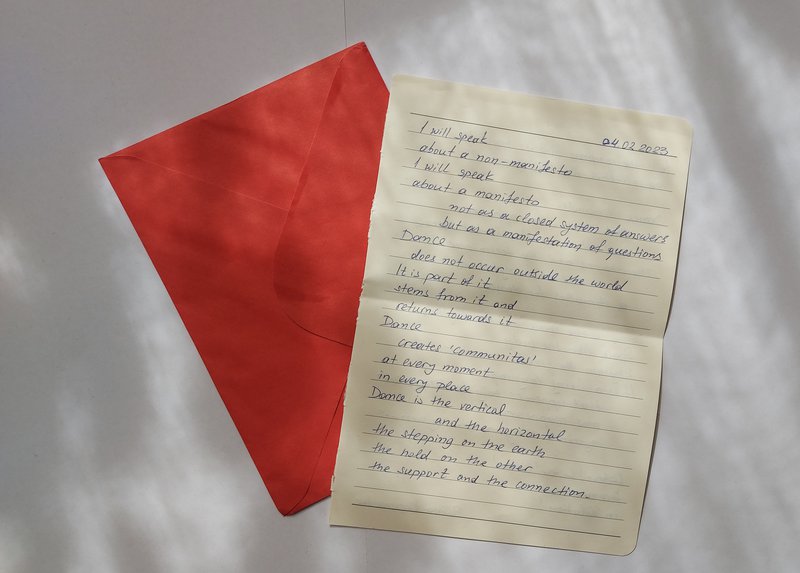 04.02.2023
I will speak
about a non-manifesto
I will speak
about a manifesto
not as a closed system of answers
but as a manifestation of questions
Dance
does not occur outside the world
It is part of it
stems from it and
returns towards it
Dance
creates 'communitas'
at every moment
in every place
Dance is the vertical
and the horizontal
the stepping on the earth
the hold on the other
the support and the connection.